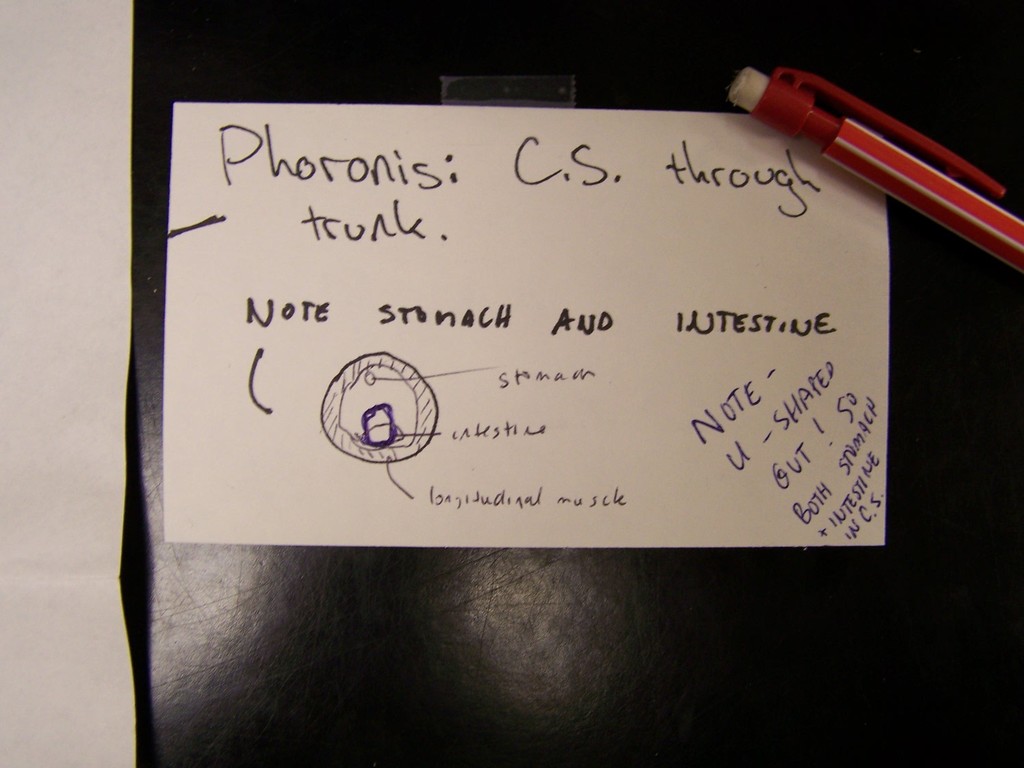 Phoronis: C.S. through
trunk.
NOTE STOMACH AND INTESTINE
stomach
intestine
longitudinal muscle
NOTE -
U - SHAPED
GUT! SO
BOTH STOMACH
+ INTESTINE
IN C.S.